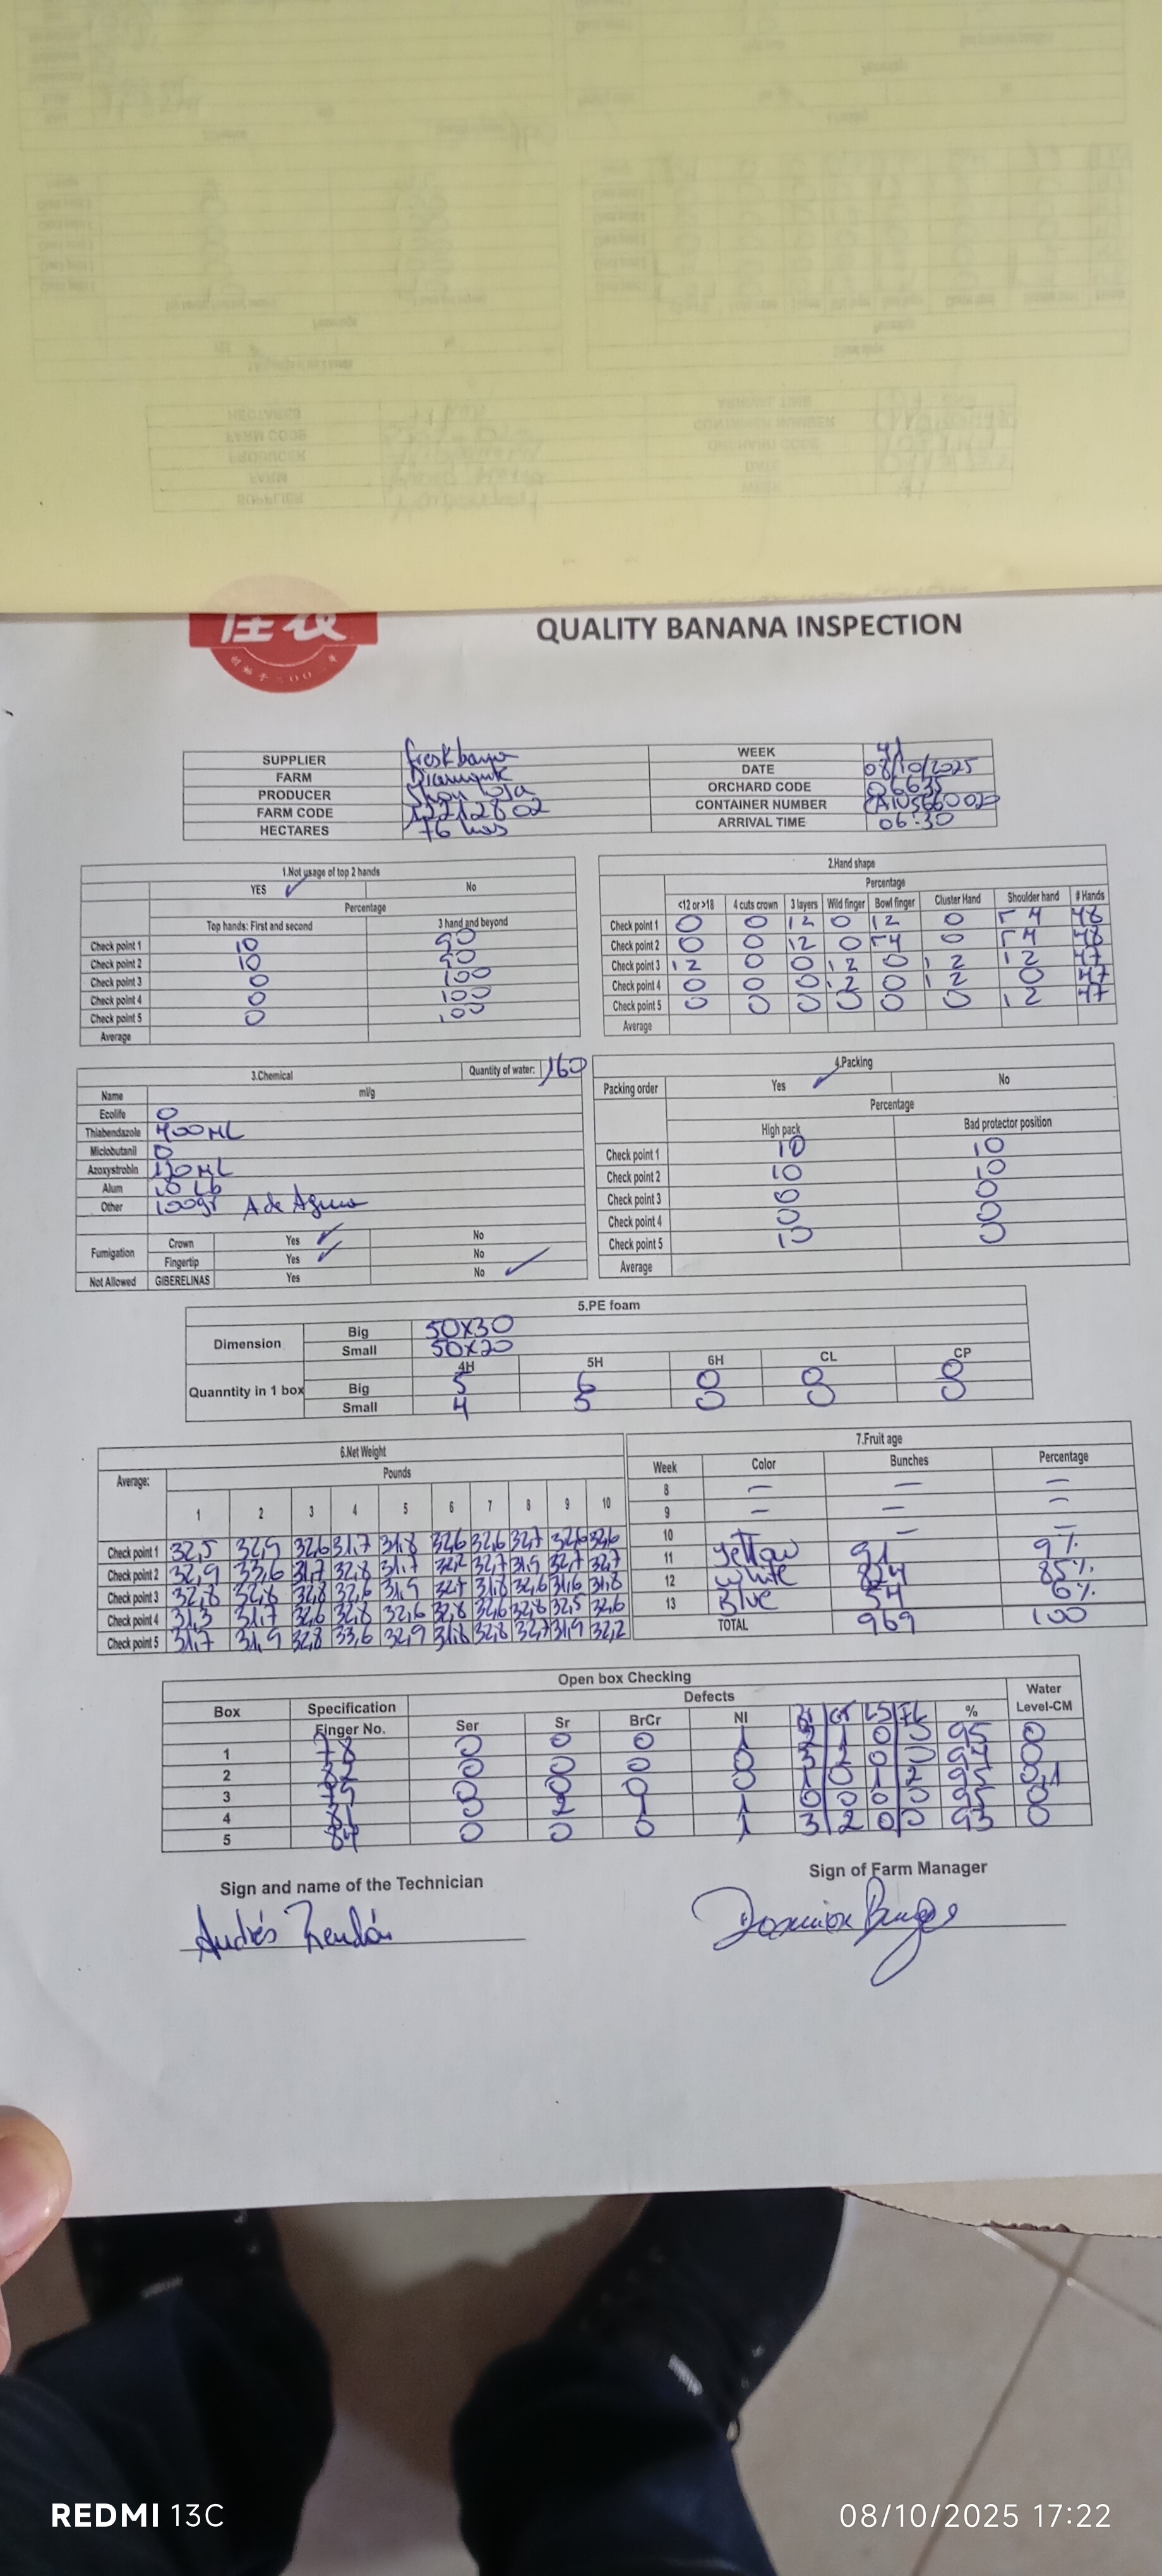 佳农
QUALITY BANANA INSPECTION
SUPPLIER WEEK 41
FARM DATE 08/10/2025
PRODUCER ORCHARD CODE 06635
FARM CODE 12212802 CONTAINER NUMBER
HECTARES 76 has ARRIVAL TIME 06:30
1.Not usage of top 2 hands
YES ✓ No
Percentage
Top hands: First and second 3 hand and beyond
Check point 1 10 90
Check point 2 10 90
Check point 3 0 100
Check point 4 0 100
Check point 5 0 100
Average
2.Hand shape
Percentage
<12 or >18 4 cuts crown 3 layers Wild finger Bowl finger Cluster Hand Shoulder hand # Hands
Check point 1 0 0 12 0 12 0 48
Check point 2 0 0 12 0 0 48
Check point 3 12 0 0 12 0 12 12 47
Check point 4 0 0 0 12 0 12 0 47
Check point 5 0 0 0 0 0 0 12 47
Average
3.Chemical Quantity of water: 160
Name ml/g
Ecolife 0
Thiabendazole 400ML
Miclobutanil 0
Azoxystrobin
Alum 10 Lb
Other 100gr A de Agua
Fumigation Crown Yes ✓ No
Fingertip Yes ✓ No
Not Allowed GIBERELINAS Yes No ✓
4.Packing
Packing order Yes ✓ No
Percentage
High pack Bad protector position
Check point 1 10 10
Check point 2 10 10
Check point 3 0 0
Check point 4 0 0
Check point 5 10 0
Average
5.PE foam
Dimension Big 50X30
Small 50X20
4H 5H 6H CL CP
Quanntity in 1 box Big 5 6 0 0 0
Small 4 5 0 0 0
6.Net Weight
Average: Pounds
1 2 3 4 5 6 7 8 9 10
Check point 1 32,5 32,9 32,6 31,7 31,8 32,6 32,6 32,7 32,6 32,6
Check point 2 32,9 33,6 31,7 32,8 31,7 32,2 32,7 31,9 32,7 32,7
Check point 3 32,8 32,8 32,8 32,6 31,9 32,7 31,8 32,6 31,6 31,8
Check point 4 31,3 31,7 32,6 32,8 32,6 32,8 32,6 32,8 32,5 32,6
Check point 5 31,7 31,9 32,8 33,6 32,9 31,8 32,8 32,7 31,9 32,2
7.Fruit age
Week Color Bunches Percentage
8 — — —
9 — — —
10 — —
11 Yellow 91 9%
12 White 824 85%
13 Blue 54 6%
TOTAL 969 100
Open box Checking
Box Specification Defects Water
Finger No. Ser Sr BrCr NI % Level-CM
1 78 0 0 0 1 2 1 0 0 95 0
2 82 0 0 0 0 3 2 0 0 94 0
3 79 0 0 0 0 1 0 1 2 95 0,1
4 81 2 1 1 0 0 0 0 95 0
5 84 0 0 0 1 3 2 0 0 93 0
Sign and name of the Technician Sign of Farm Manager
Andrés Rendón
REDMI 13C 08/10/2025 17:22